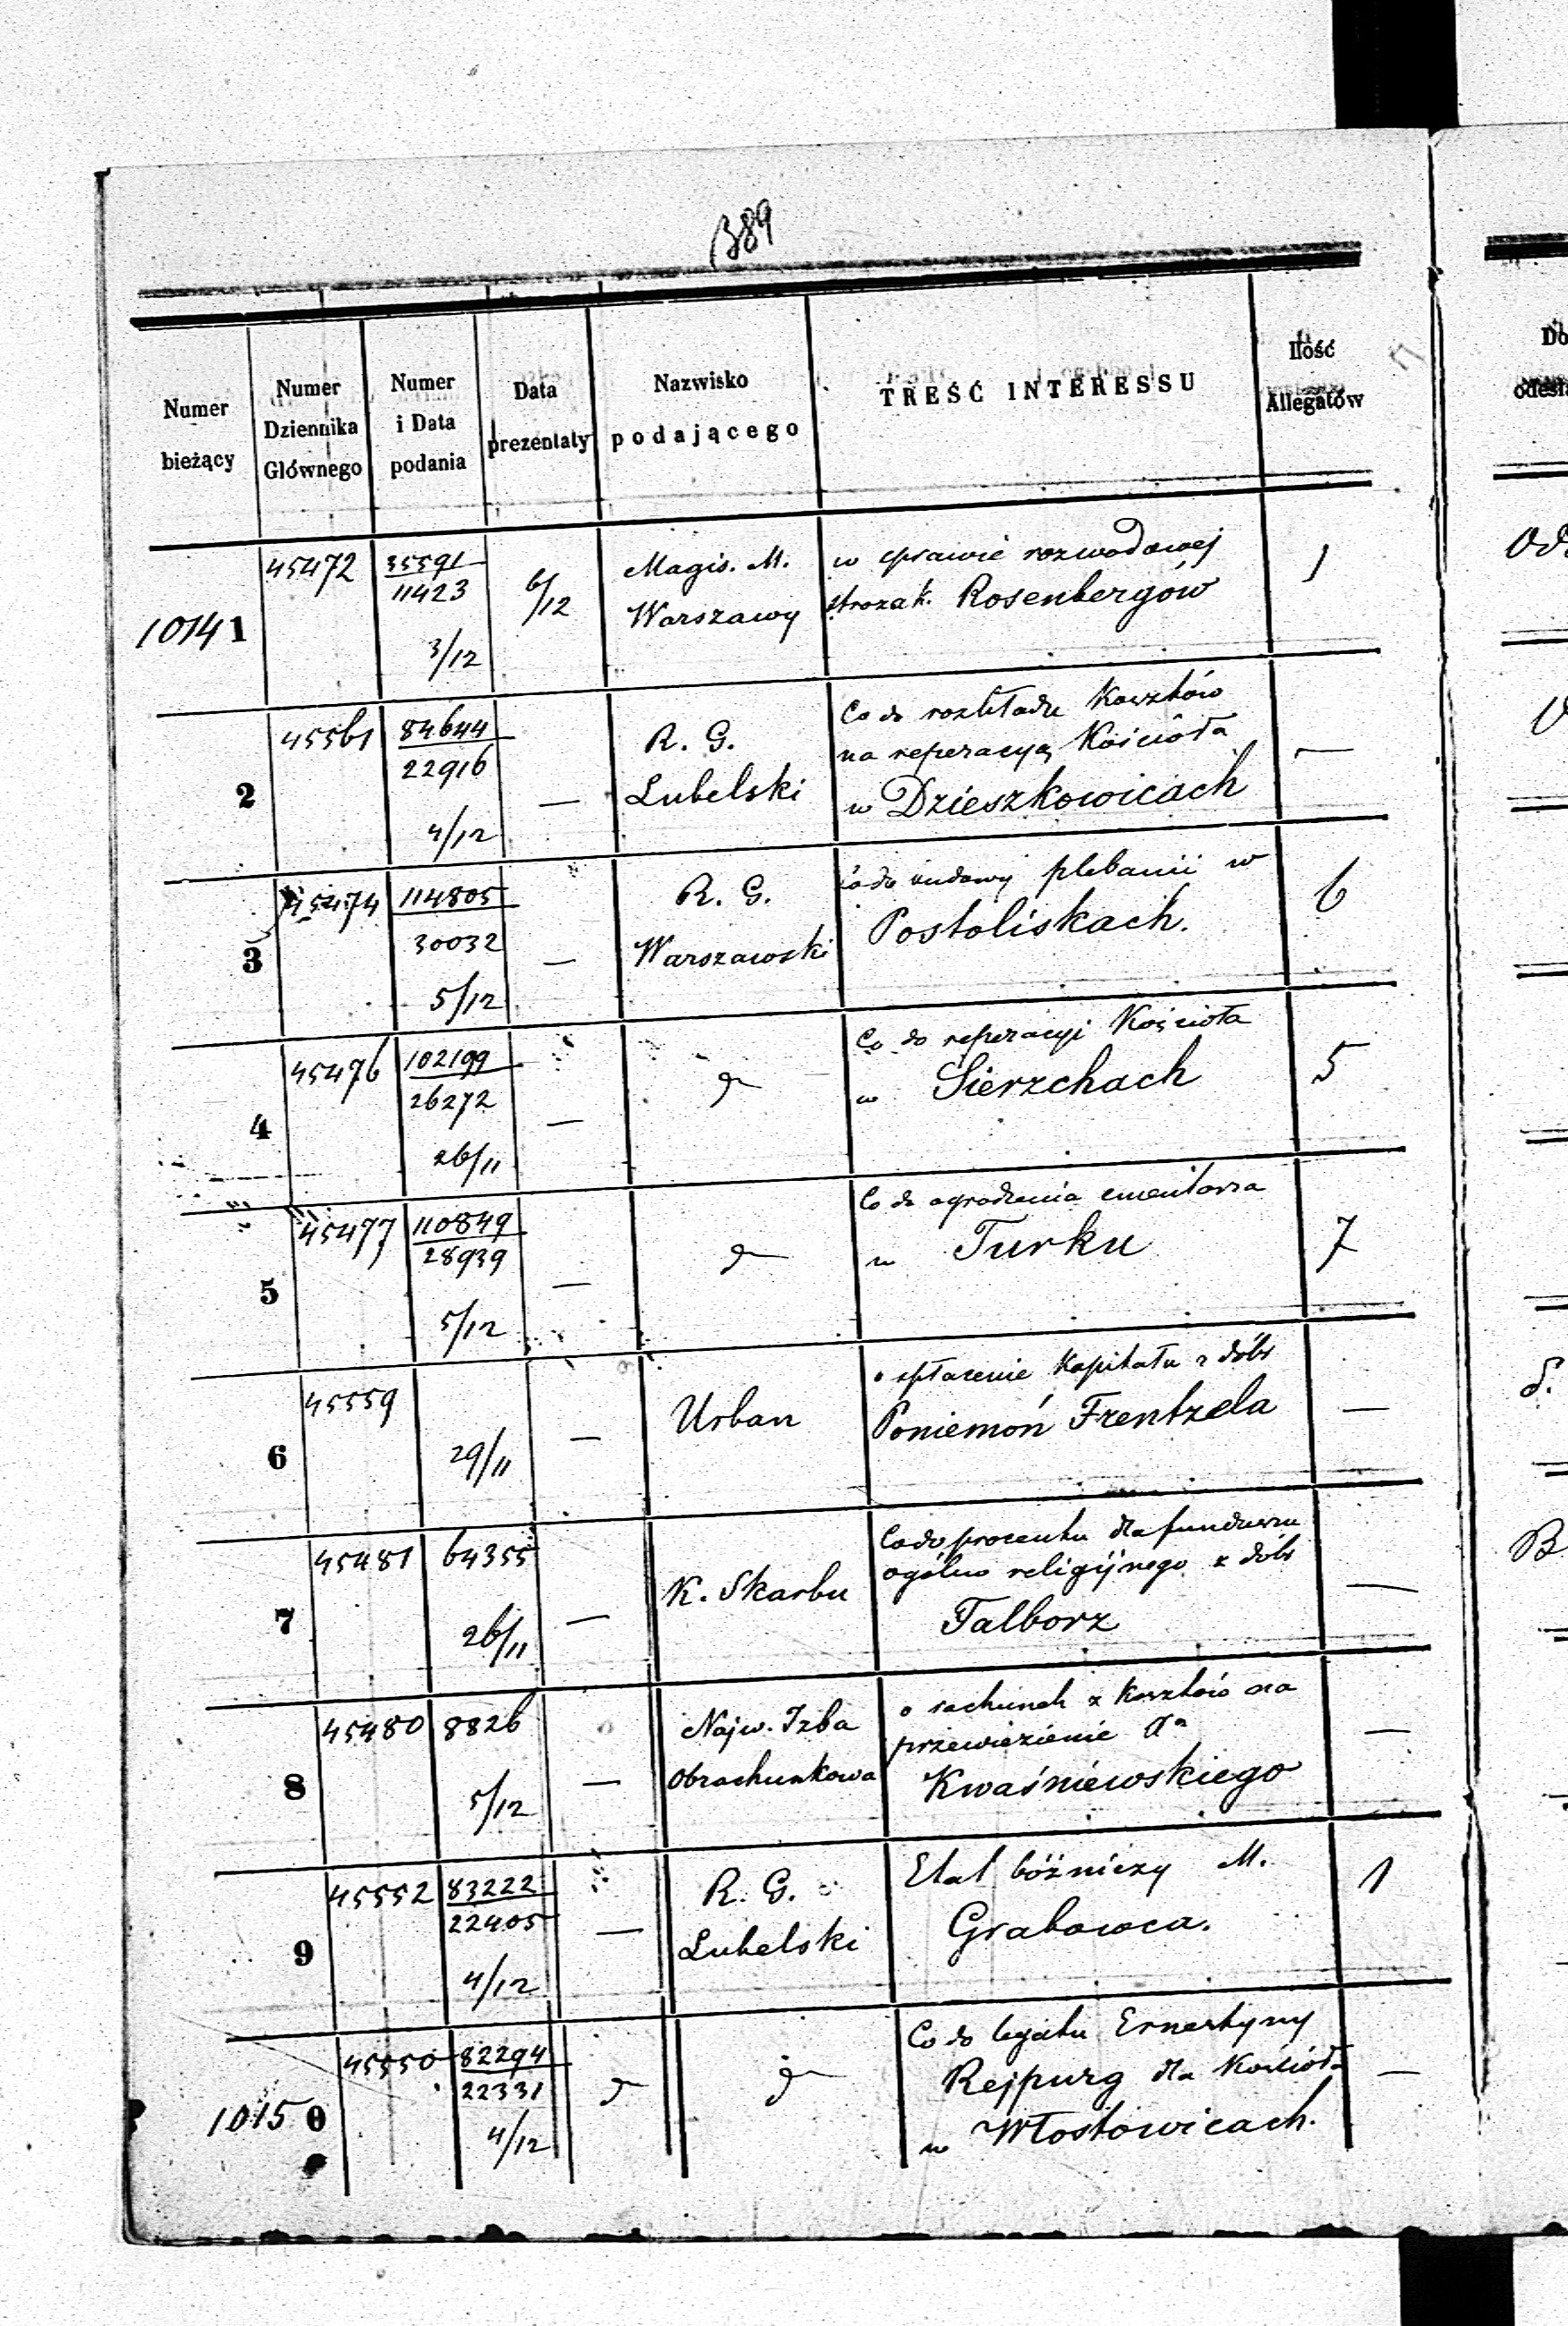 389
Numer bieżący
Numer Dziennika Głównego
Numer i Data podania
Data prezentaty
Nazwisko podającego
TREŚĆ INTERESSU
Ilość Allegatów
Do
10141
45472
35591
11423
3/12
6/12
Magis. M.
Warszawy
w sprawie rozwodowej
starozak. Rosenbergów
1
2
45561
84644
22916
4/12
—
R. G.
Lubelski
Co do rozkładu Kosztów
na reperacyą Kościoła
w Dzieszkowicach
—
3
45474
114805
30032
5/12
—
R. G.
Warszawski
Co do budowy plebanii w
Postoliskach.
6
4
45476
102199
26272
26/11
—
Co do reperacyi Kościoła
w Sierzchach
5
5
45477
110849
28939
5/12
—
Co do ogrodzenia cmentarza
w Turku
7
6
45559
29/11
—
Urban
o spłacenie Kapitału z dóbr
Poniemoń Frentzela
—
7
45481
64355
26/11
—
K. Skarbu
Co do procentu dla funduszu
ogólno religijnego z dóbr
Talborz
—
8
45480
8826
5/12
—
Najw. Izba
Obrachunkowa
o rachunek z Kosztów na
przewiezienie
Kwaśniewskiego
—
9
45552
83222
22405
4/12
—
R. G.
Lubelski
Etat bóżniczy M.
Grabowca.
1
10150
45550
82294
22331
4/12
Co do legatu Ernestyny
Rejpurg dla Kościoła
w Włostowicach.
—